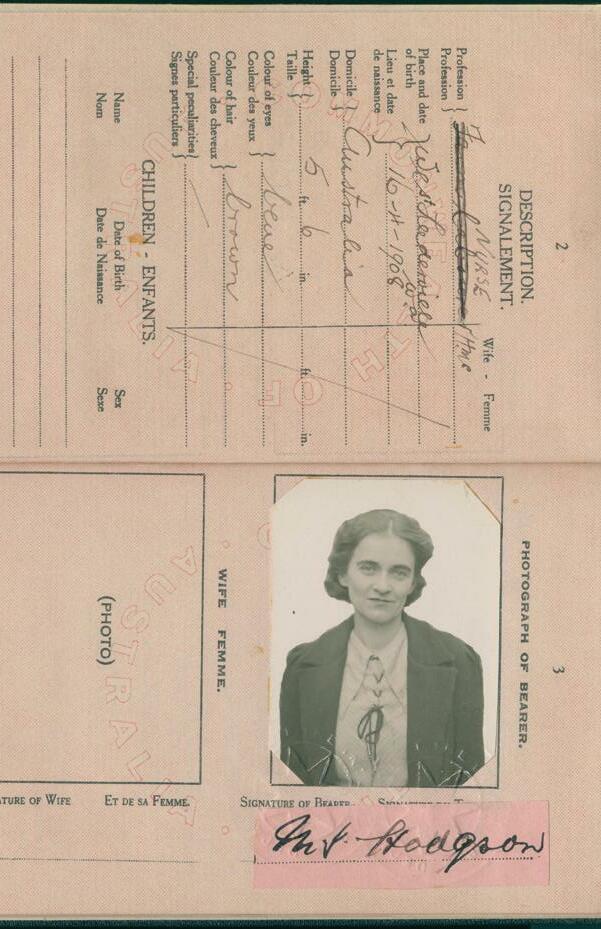 2
DESCRIPTION.
SIGNALEMENT.
Wife - Femme
NURSE
Profession
Profession
Place and date
of birth
West Leederville
W.A.
Lieu et date
de naissance
16-4-1908
Domicile
Domicile
Australia
Height
Taille
5 ft. 6 in. ft. in.
Colour of eyes
Couleur des yeux
Colour of hair
Couleur des cheveux
brown
Special peculiarities
Signes particuliers
CHILDREN - ENFANTS.
Name Date of Birth Sex
Nom Date de Naissance Sexe
COMMONWEALTH OF AUSTRALIA.
3
PHOTOGRAPH OF BEARER.
WIFE FEMME.
(PHOTO)
AUSTRALIA.
SIGNATURE OF BEARER
OF WIFE ET DE SA FEMME.
Hodgson